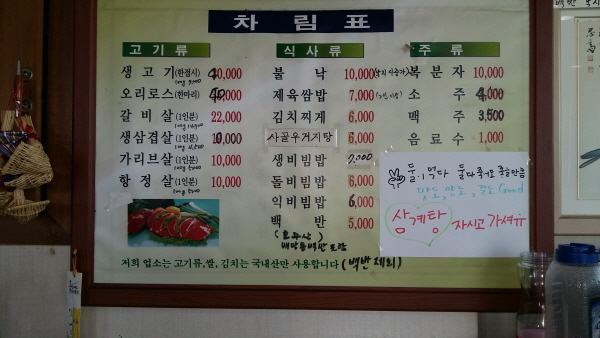 차림표
고기류
생고기(한접시) 40,000
오리로스(한마리) 40,000
갈비살(1인분) 22,000
생삼겹살(1인분) 10,000
가리브살(1인분) 10,000
항정살(1인분) 10,000
식사류
불낙 10,000
제육쌈밥 7,000
김치찌게 6,000
사골우거지탕 6,000
생비빔밥 7,000
돌비빔밥 6,000
익비빔밥 6,000
백반 5,000
(호주산)
주류
복분자 10,000
소주 4,000
맥주
음료수 1,000
둘이 먹다 둘다 죽어도 좋을만큼
삼계탕 자시고 가셔유
저희 업소는 고기류,쌀, 김치는 국내산만 사용합니다 (백반 제외)